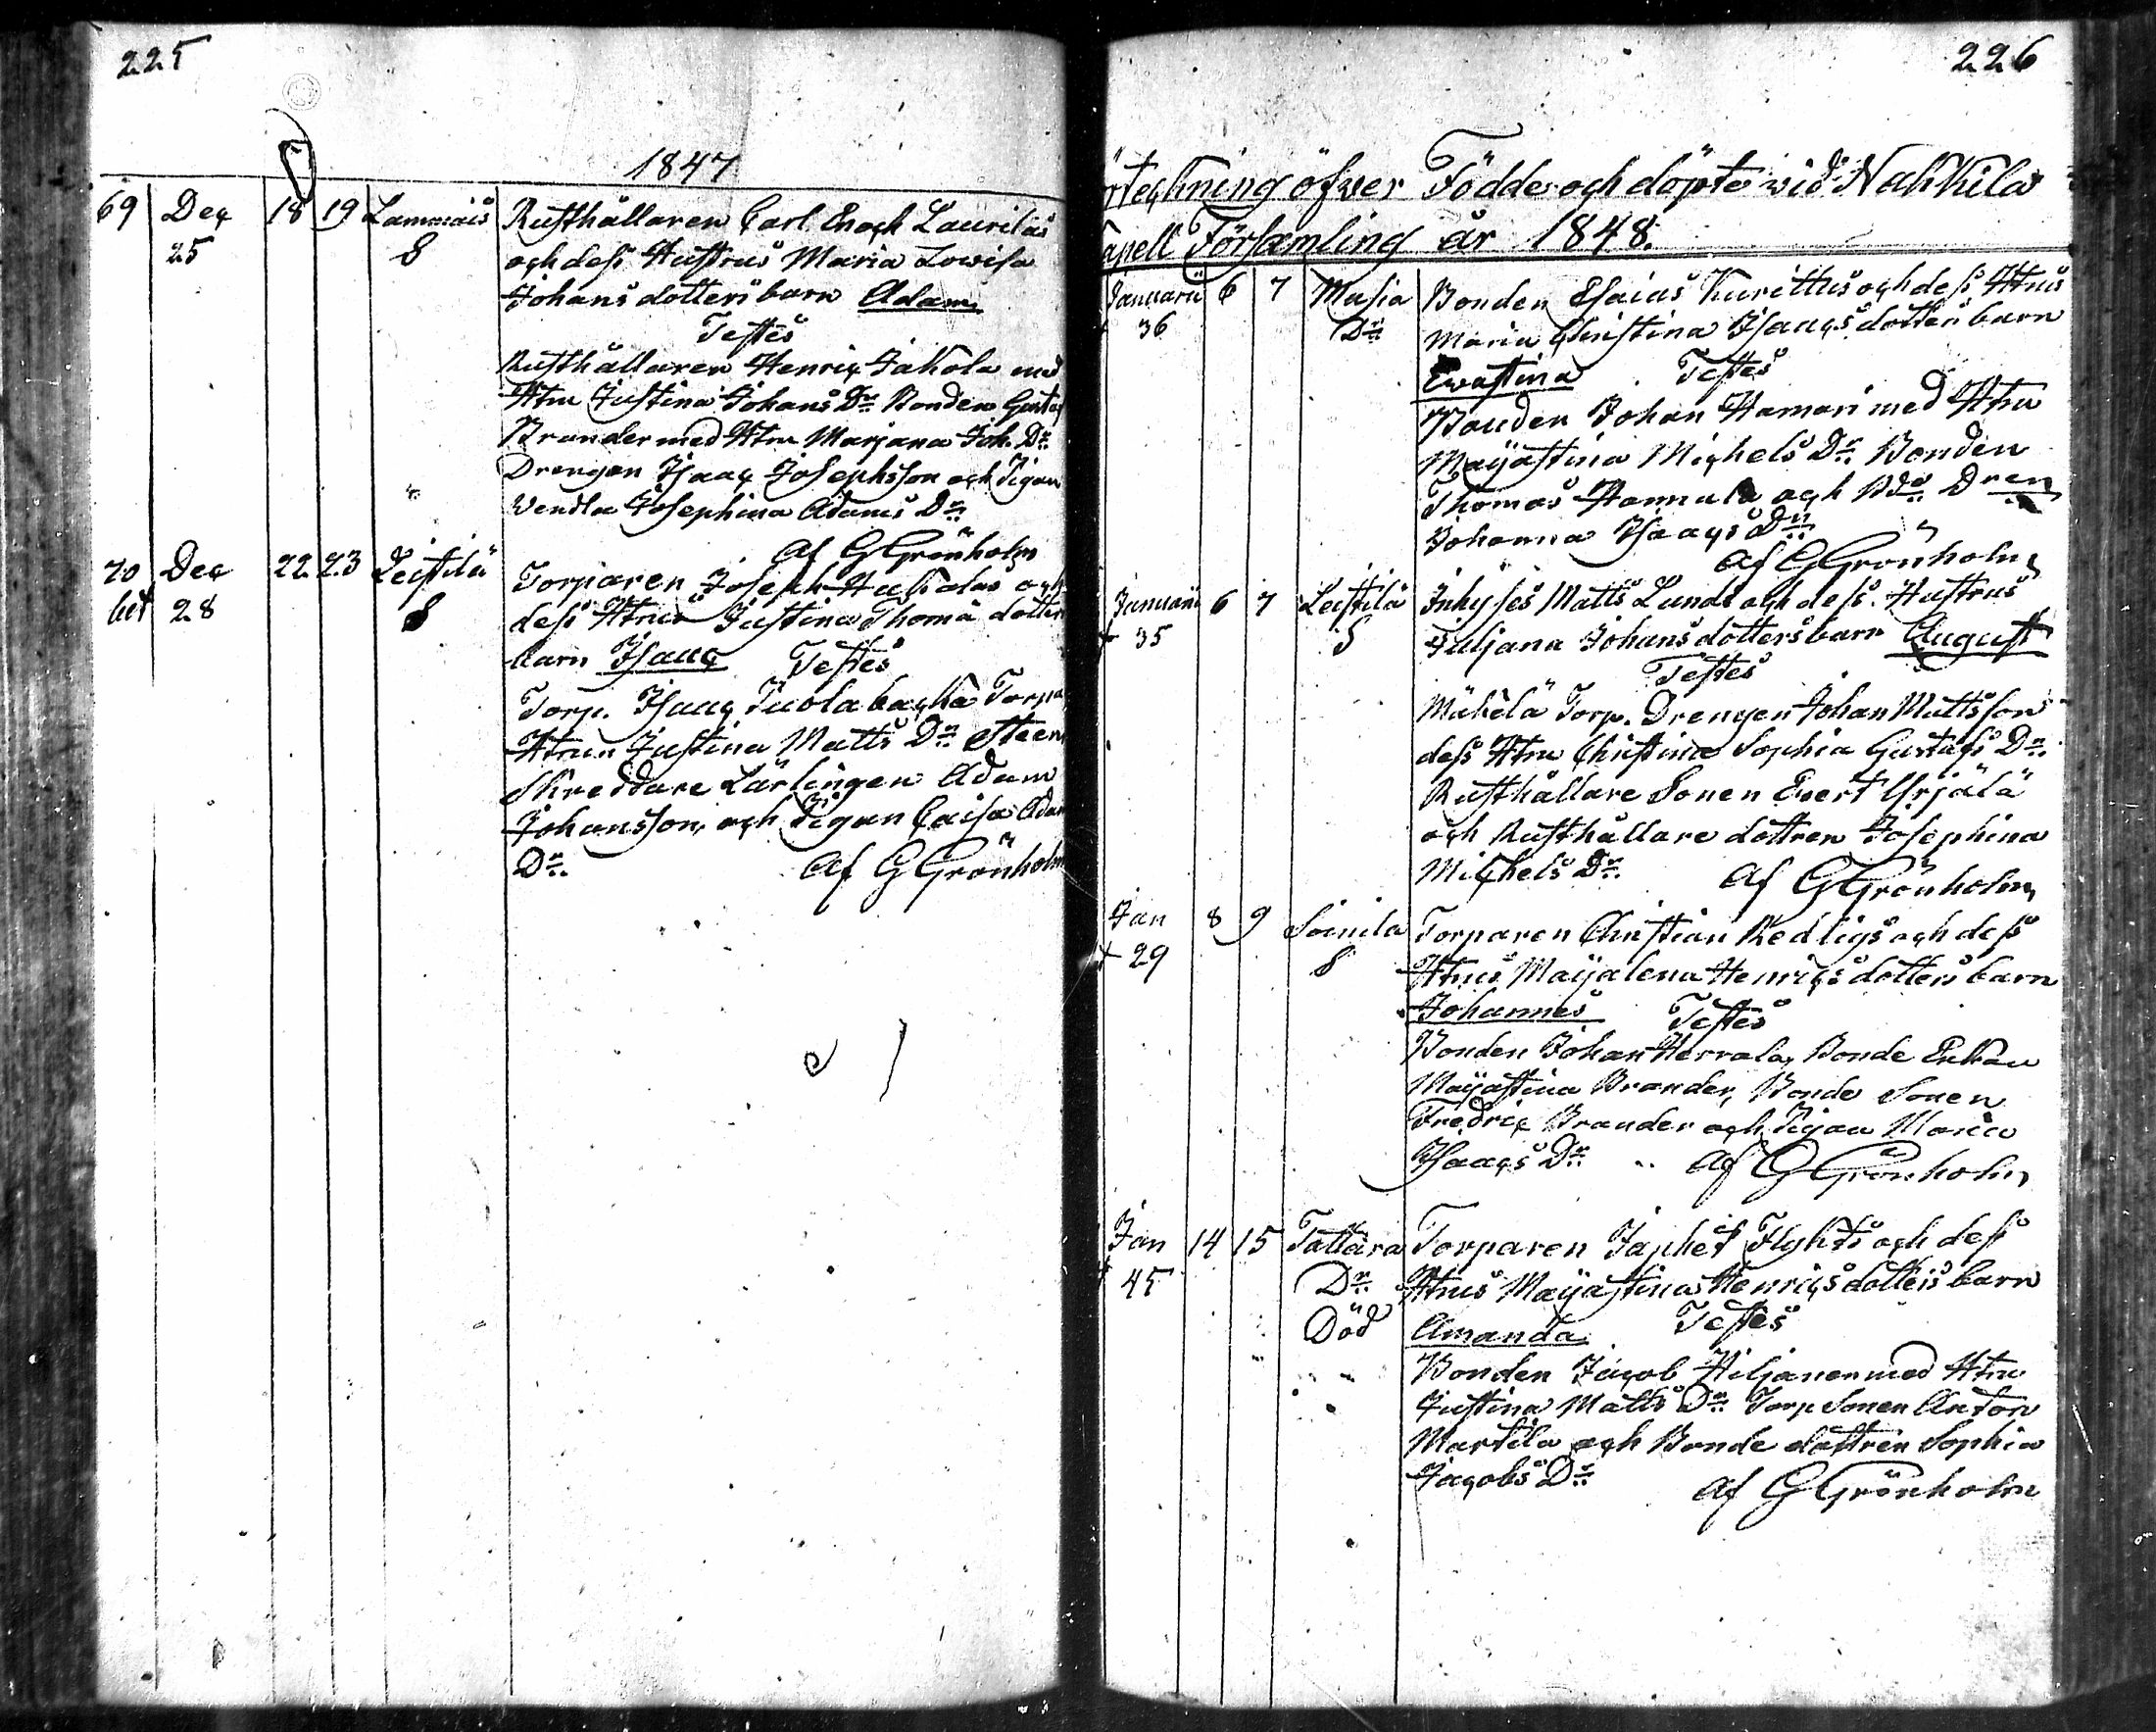 225
1847
69 Dec 18 19 Lammais Rusthållaren Carl Enoch Laurilas
25 S och dess Hustrus Maria Lowisa
Johans dotters barn Adam
Testes
Rusthållaren Henric Jakola med
Htru Justina Johans Dr Bonden Gustaf
Brander med Htru Marjana Joh. Dr
Drengen Isaac Josephsson och Pigan
Wendla Josephina Adams Dr
Af G Grönholm
70 Dec 22 23 Leistilä Torparen Joseph och
28 S dess Htrus Justina Thomä dotters
barn Isaac Testes
Torp. Isaac Tuolabacka Torp
Htrun Justina Matts Dr
Skreddare Lärlingen Adam
Johansson, och Pigan Caisa Adam
Dr. Af G Grönholm
226
rteckning öfwer Födde och döpte wid Nakkila
apell Församling år 1848.
Januarii 6 7 Masia Bonden Esaias Kurittus och dess Htrus
36 Dr Maria Christina Isaacs dotters barn
Ewastina Testes
Bonden Johan Hamari med Htru
Mayastina Michels Dr Bonden
Thomas Hannula och Dren
Johanna Isaacs Dr
Af G Grönholm
Januarii 6 7 Leistilä Inhyses Matts Lunds och dess Hustrus
+ 35 S Juljana Johans dotters barn August
Testes
Mäkelä Torp. Drengen Johan Mattsson
dess Htru Christina Sophia Gustafs Dr
Rusthållare Sonen Evert Yrjälä
och Rusthållare dottren Josephina
Michels Dr. Af G Grönholm
Jan 8 9 Soinila Torparen Christian Redligs och dess
+ 29 S Htrus Mayalena Henrics dotters barn
Johannes Testes
Bonden Johan Herrala, Bonde Enkan
Mayastina Brander, Bonde Sonen
Fredric Brander och Pigan Maria
Isaacs Dr Af G Grönholm
Jan 14 15 Tattara Torparen Japhet Flykts och dess
+ 45 Dr Htrus Mayastina Henrics dotters barn
Död Amanda Testes
Bonden Jacob Hiljanen med Htru
Justina Matts Dr Torp Sonen Anton
Martila och Bonde dottren Sophia
Jacobs Dr Af G Grönholm